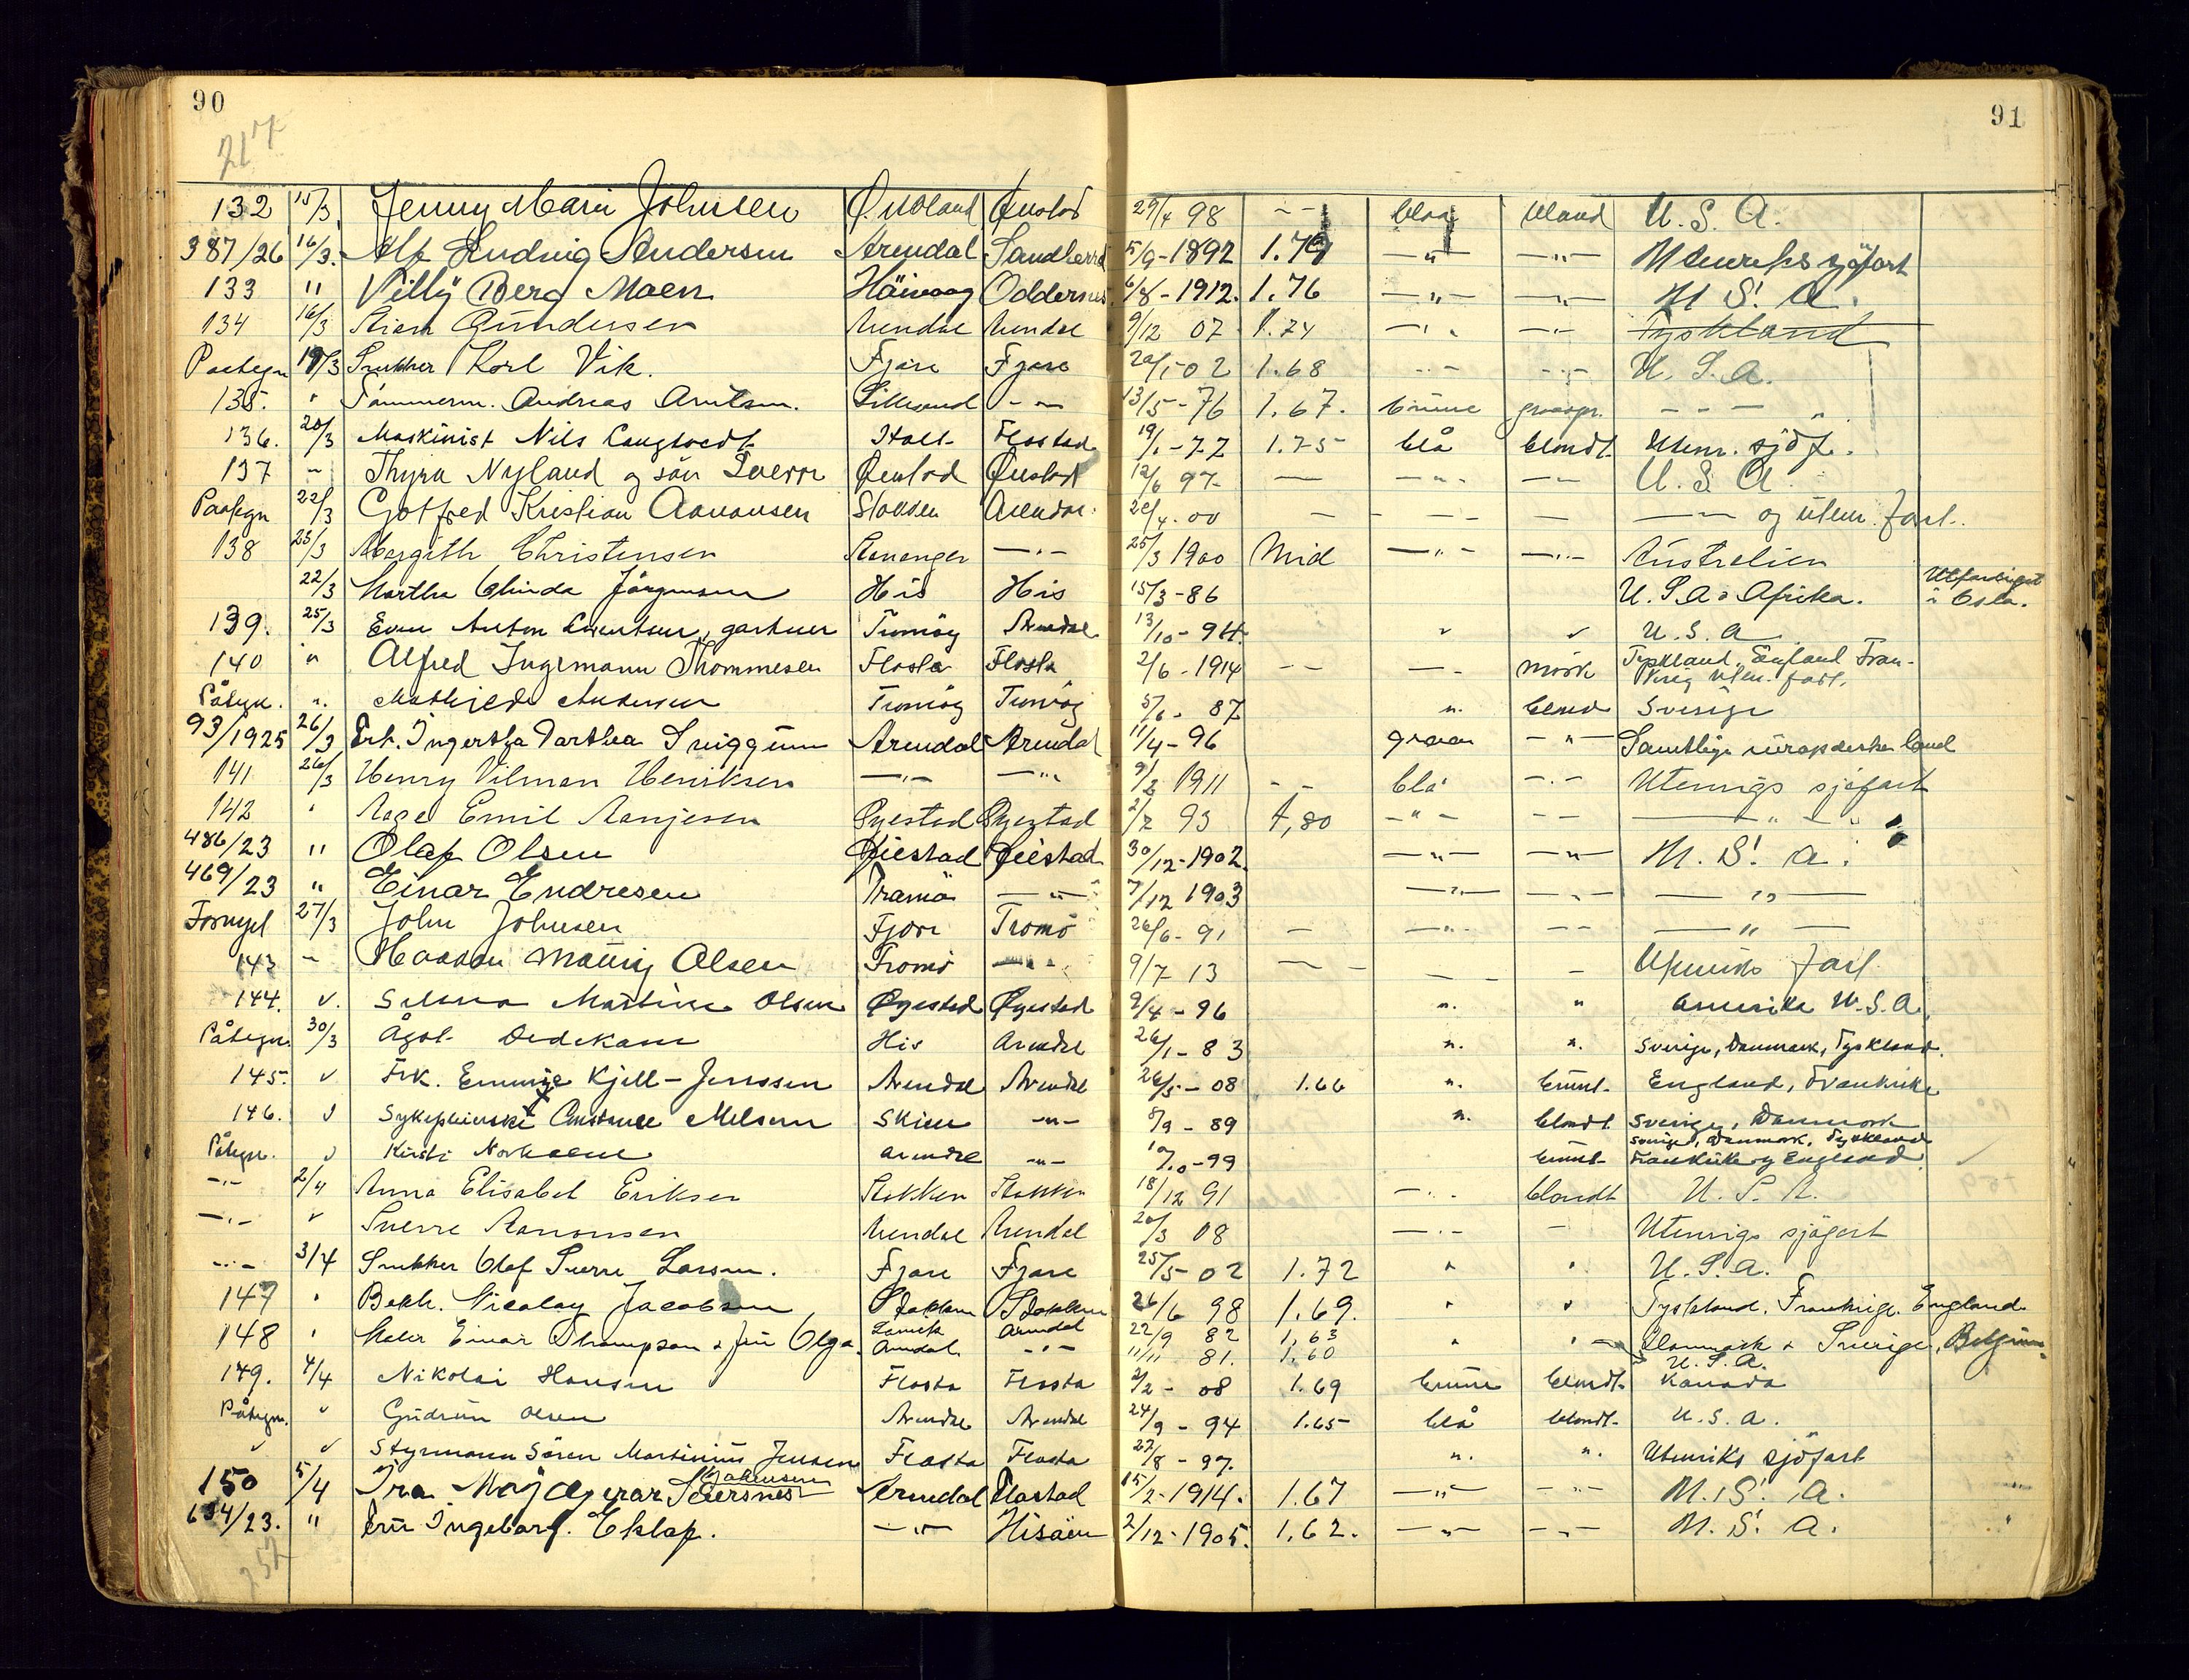 90
91
217
132 15/3 Jenny Marie Johnsen Øiestad 29/4 98 - - blaa bland U.S.A.
387/26 16/3. Alf Ludvig Andersen Arendal Sandherred 5/9-1892 1.79 —"— —"— Utenriks sjöfart
133 " Villÿ Berg Moen Höivaag Oddernes 6/8-1912. 1.76 —"— —"— U.S.A.
134 16/3 Stian Gundersen Arendal Arendal 9/12 07 1.74 —"— —"— Tyskland
Paategn 19/3 Snekker Karl Vik. Fjære Fjære 20/1-02 1.68 -"- -"- U.S.A.
135. " Tömmerm. Andreas Arntsen. Lillesand -"- 13/5-76 1.67. brune graaspr. - - - "
136. 20/3 Maskinist Nils Langtvedt Holt Flostad 19/1-77 1.75 blå blondt. Utenr. sjöf.
137 - Thyra Nyland og sön Sverre Øiestad Øiestad 12/6 97. — -"- -"- U.S.A.
Paategn 22/3 Gotfred Kristian Aanonsen Stokken Arendal. 20/4.00 - - - - — —"— og utenr. fart.
138 23/3 Margith Christensen Stavanger —"— 25/3 1900 Mid —"— —"— Australien
22/3 Martha Olinda Jörgensen His His 15/3-86 U.S.A. & Afrika. Utfærdiget i Oslo.
139. 25/3 Even Anton Eventsen, gartner Tromöy Arendal 13/10-94. " " U.S.A
140 " Alfred Ingemann Thommesen Flosta Flosta 2/6-1914 - - -"- mörk Tyskland, England Fran-
krig Uten. fart.
Påtegn. ". Mathilde Andersen Tromöy Tromöy 5/6-87 ". blond Sverige
93/1925 26/3 Frk. Ingertha Dorthea Sniggum Arendal Arendal 11/4-96 graa -"- Samtlige europæiske land
141 26/3 Henry Vilman Henriksen —"— —"— 9/2 1911 - - blå -"- Utenrigs sjöfart
142 " Aage Emil Aanjesen Øyestad Øyestad 2/7 93 1,80 -"- - - —"—"
486/23 " Olaf Olsen Øiestad Øiestad 30/12-1902. —"— —"— U.S.A.
469/23 " Einar Endresen Tromö —"— 7/12 1903 —"— —"— —"—
Fornyet 27/3 John Johnsen Fjære Tromö 26/6-91 — -"- - - —"—
143 - Haakon Mauritz Olsen Tromö 9/7 13 — - — - Utenriks fart
144. v. Selma Martine Olsen Øyestad Øyestad 9/4-96 ". " Amerika U.S.A.
Påtegn. 30/3 Ågot Dedekam His Arendal 26/1-83 ". ". Sverige, Danmark, Tyskland.
145. v Frk. Emmy Kjell-Jenssen Arendal Arendal 26/5-08 1.66 ". brunt. England, Frankrike
146. v Sykepleierske Constance Melsom Skien -"- 8/9-89 ". blondt. Sverige, Danmark
Påtegn. v Kirsti Arendal -"- 10-99 brunt Sverige, Danmark, Tyskland
Frankrike og England
-"- 2/4 Anna Elisabet Eriksen Stokken Stokken 18/12 91 -"- blondt U.S.A.
-"- v Sverre Aanonsen Arendal Arendal 20/3 08 -"- - Utenrigs sjöfart
-"- 3/4 Snekker Olaf Sverre Larsen. Fjære Fjære 25/5-02 1.72 " " U.S.A.
147 " Bekh. Nicolay Jacobsen Stokken Stokken 26/6 98 1.69. " " Tyskland. Frankrige. England
148 " Maler Einar Thompson & fru Olga. Arendal 22/9 82 1,63 " " Danmark & Sverige, Belgien
Arendal. -"- 11/11 81. 1.60 U.S.A.
149. 4/4 Nikolai Hansen Flosta Flosta 2/2-08 1.69 brune blondt. Kanada
Påtegn. v Gudrun Olsen Arendal Arendal 24/9-94 1.65 blå blondt. U.S.A.
v v Styrmann Sören Martinius Jensen Flosta Flosta 27/8-97. ". ". Utenriks sjöfart
Johnsen
150 5/4 Fra May Seiersnes Arendal Flostad 15/2-1914. 1.67 —"— -"- U.S.A.
634/23. " Fru Ingeborg Eklop. —"— Hisöen 2/12-1905. 1.62. —"— -"- U.S.A.
252